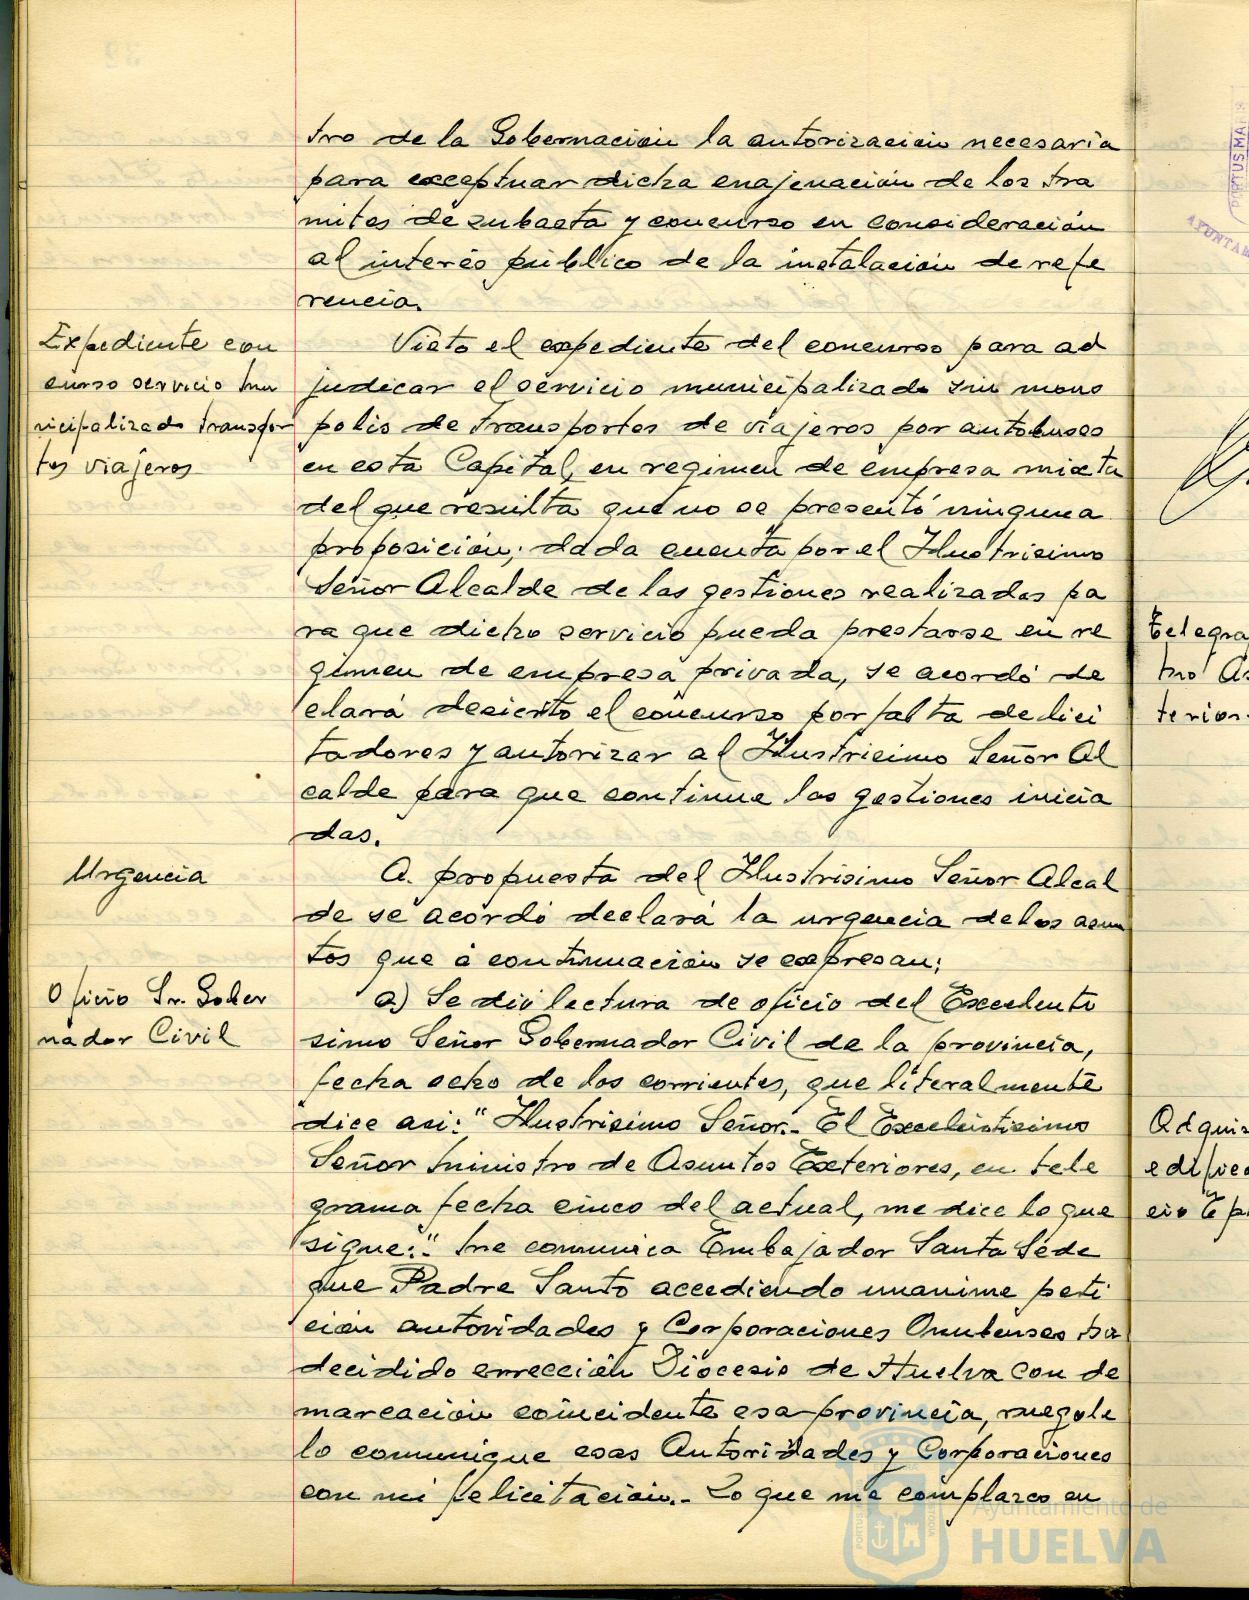 tro de la Gobernación la autorización necesaria
para exceptuar dicha enajenación de los tra
mites de subasta y concurso en consideración
al interés público de la instalación de refe
rencia.
Expediente con
curso servicio mu
nicipalizado transpor
tes viajeros
Visto el expediente del concurso para ad
judicar el servicio municipalizado sin mono
polio de transportes de viajeros por autobuses
en esta Capital, en regimen de empresa mixta
del que resulta que no se presentó ninguna
proposición; dada cuenta por el Ilustrisimo
Señor Alcalde de las gestiones realizadas pa
ra que dicho servicio pueda prestarse en re
gimen de empresa privada, se acordó de
clará desierto el concurso por falta de lici
tadores y autorizar al Ilustrisimo Señor Al
calde para que continue las gestiones inicia
das.
Urgencia
A propuesta del Ilustrisimo Señor Alcal
de se acordó declará la urgencia de los asun
tos que á continuación se expresan:
Oficio Sr. Gober
nador Civil
a) Se dió lectura de oficio del Excelenti
simo Señor Gobernador Civil de la provincia,
fecha ocho de los corrientes, que literalmente
dice asi: "Ilustrisimo Señor.- El Excelentisimo
Señor Ministro de Asuntos Exteriores, en tele
grama fecha cinco del actual, me dice lo que
sigue:" Me comunica Embajador Santa Sede
que Padre Santo accediendo unanime peti
ción autoridades y Corporaciones Onubenses ha
decidido errección Diocesis de Huelva con de
marcación coincidente esa provincia, ruegole
lo comunique esas Autoridades y Corporaciones
con mi felicitación.- Lo que me complazco en
Telegra
mo As
terior
Adquis
edific
cio Ep
PORTUS MA
AYUNTAM
Ayuntamiento de
HUELVA